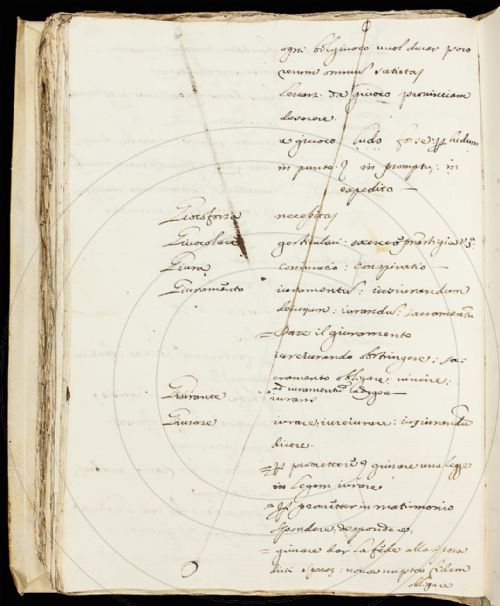 ogni bel giuoco vuol durar poco
rerum omnium satietas
levarsi da giuoco provinciam
deserere.
a giuoco ludo forse: per ludum
in punto in promptu: in
expedito —
Giocoforza necessitas
Giuocolare gesticulari: exerceo praestigias
Giura conjuratio: conspiratio —
Giuramento iuramentum: iusiurandum
iurandum: sacramentum
= Dare il giuramento
iureiurando obstringere: sa-
cramento obligare: vincire:
ad iuramentum adigere —
Giurante iurans
Giurare iurare, iureiurare: iusiurandum
dicere.
= per promettere giurare una legge
in legem iurare.
= per promettere in matrimonio
spondere: despondere.
= giurare dar la fede alla sposa
fidem
obligare